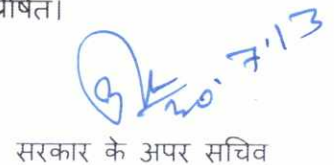 प्रेषित।
30.7.13
सरकार के अपर सचिव